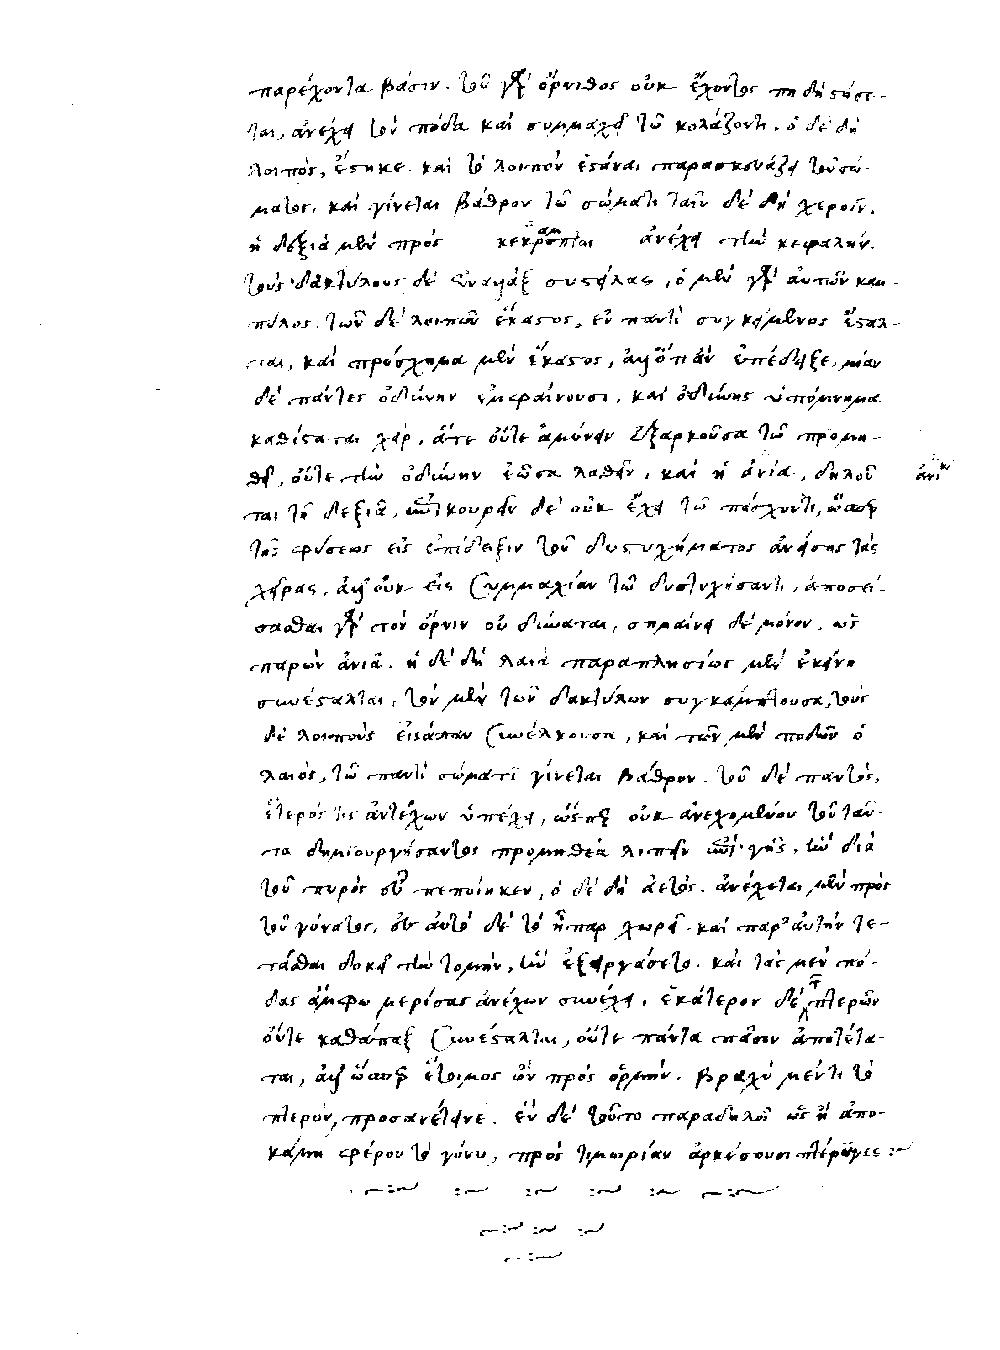 παρέχοντα βάσιν. τοῦ γὰρ ὄρνιθος οὐκ ἔχοντος πη δὴ στήσε-
ται, ἀνέχει τὸν πόδα καὶ συμμαχεῖ τῷ κολάζοντι. ὁ δὲ δὴ
λοιπὸς, ἕστηκε. καὶ τὸ λοιπὸν ἑστάναι παρασκευάζει τοῦ σώ-
ματος. καὶ γίνεται βάθρον τῷ σώματι ταῖν δὲ δὴ χεροῖν.
ἡ δεξιὰ μὲν πρὸς ἀνέχει τὴν κεφαλήν.
τοὺς δακτύλους δὲ συστείλας, ὁ μὲν γὰρ αὐτῶν καμ-
πύλος. τῶν δὲ λοιπῶν ἕκαστος, ἐν παντὶ συγκείμενος ἔσταλ-
ται, καὶ πρόσχημα μὲν ἕκαστος, ἀλλ' ὅπἂν ὑπέδειξε, μίαν
δὲ πάντες ὀδύνην ἐμφαίνουσι. καὶ ὀδύνης ὑπόμνημα
καθίσταται χεὶρ, ἅτε οὔτε ἀμύνειν ἐξαρκοῦσα τῷ προμη-
θεῖ, οὔτε τὴν ὀδύνην ἐῶσα λαθεῖν. καὶ ἡ ἀνία, δηλοῦ
ται τῇ δεξιᾷ, ἐπικουρεῖν δὲ οὐκ ἔχει τῷ πάσχοντι, ὥσπερ
τῆς φύσεως εἰς ἐπίδειξιν τοῦ δυστυχήματος ἀνείσης τὰς
χεῖρας, ἀλλ' οὐκ εἰς συμμαχίαν τῷ δυστυχήσαντι, ἀποσεί-
σασθαι γὰρ τὸν ὄρνιν οὐ δύναται, σημαίνει δὲ μόνον. ὡς
παρὼν ἀνιᾷ. ἡ δὲ δὴ λαιὰ παραπλησίως μὲν ἐκείνη
συνέσταλται, τὸν μὲν τῶν δακτύλων συγκάμπτουσα, τοὺς
δὲ λοιποὺς εἰσάπαν συνέλκουσα, καὶ τῶν μὲν ποδῶν ὁ
λαιὸς, τῷ παντὶ σώματι γίνεται βάθρον. τοῦ δὲ παντὸς,
ἕτερός τις ἀντέχων ὑπέχει, ὥσπερ οὐκ ἀνεχομένου τοῦ ταῦ-
τα δημιουργήσαντος προμηθέα λιπεῖν ἐπὶ γῆς, ὃν διὰ
τοῦ πυρὸς οὗ πεποίηκεν, ὁ δὲ δὴ ἀετὸς. ἀνέχεται μὲν πρὸς
τοῦ γόνατος, ἐπ' αὐτὸ δὲ τὸ ἧπαρ χωρεῖ. καὶ παρ' αὐτὴν τε-
τάσθαι δοκεῖ τὴν τομὴν, ἣν ἐξειργάσετο. καὶ τὰς μὲν πό-
δας ἄμφω μερίσας ἀνέχων συνέχει. ἑκάτερον δὲ τ πτερῶν
οὔτε καθάπαξ συνέσταλται, οὔτε πάντα πᾶσιν ἀποτέτα-
ται, ἀλλ' ὥσπερ ἕτοιμος ὢν πρὸς ὁρμήν. βραχὺ μέντι τὸ
πτερὸν, προσανέτεινε. ἐν δὲ τοῦτο παραδηλοῖ ὡς ἢ ἀπο-
κάμῃ φέρον τὸ γόνυ, πρὸς τιμωρίαν ἀρκέσουσι πτέρυγες :~